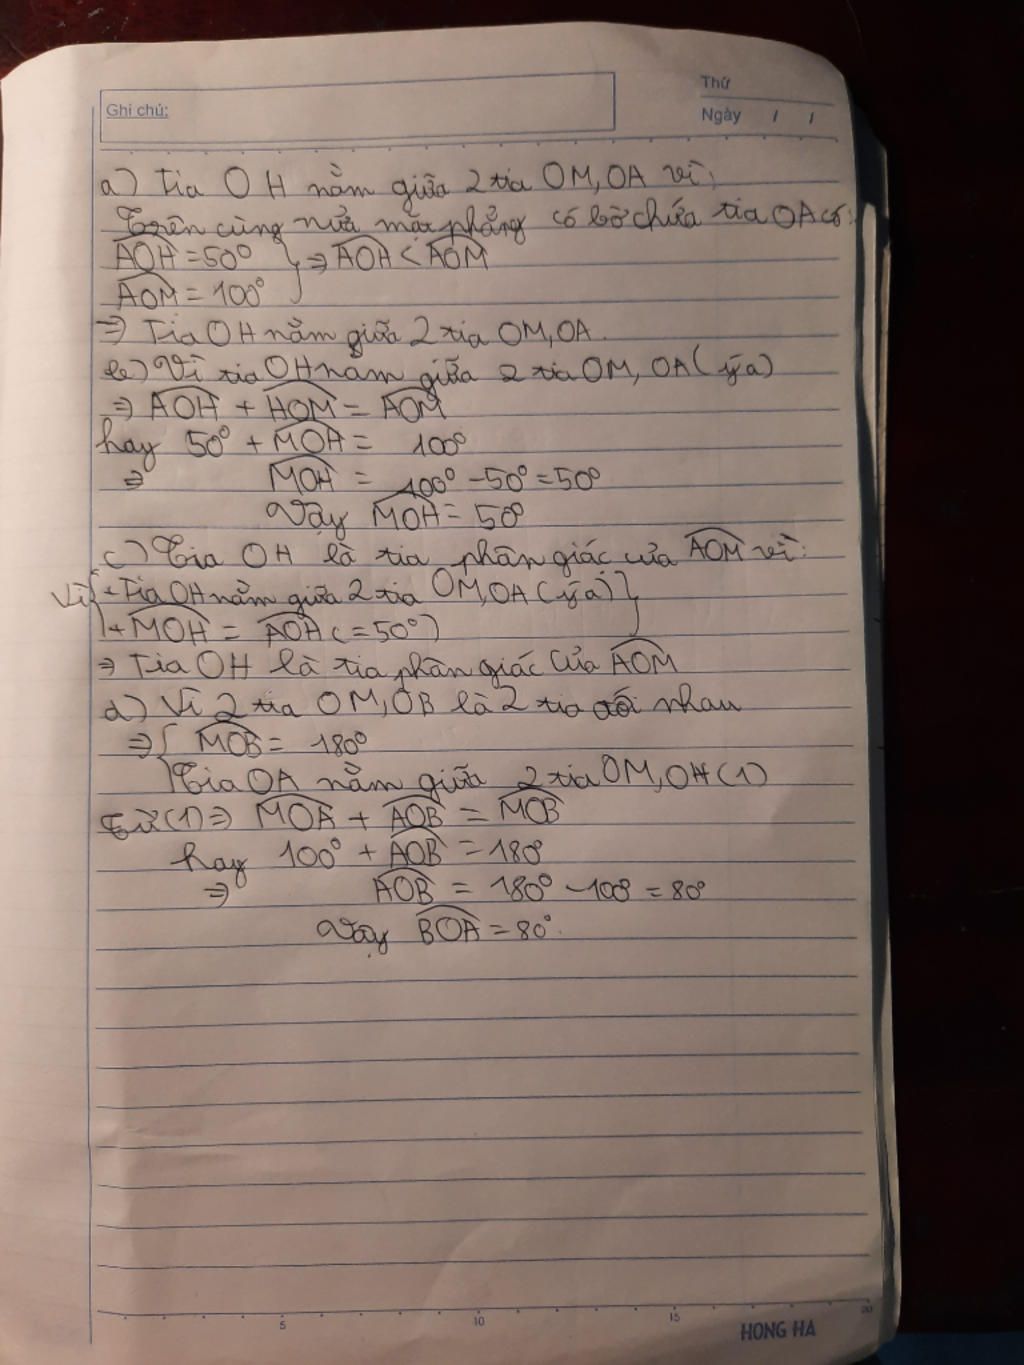 Thứ
Ghi chú:
Ngày / /
a) Tia OH nằm giữa 2 tia OM, OA vì:
Trên cùng nửa mặt phẳng có bờ chứa tia OA có:
AOH = 50° } ⇒ AOH < AOM
AOM = 100°
⇒ Tia OH nằm giữa 2 tia OM, OA.
b) Vì tia OH nằm giữa 2 tia OM, OA (ý a)
⇒ AOH + HOM = AOM
hay 50° + MOH = 100°
⇒ MOH = 100° - 50° = 50°
Vậy MOH = 50°
c) Tia OH là tia phân giác của AOM vì:
Vì { + Tia OH nằm giữa 2 tia OM, OA (ý a) }
+ MOH = AOH (= 50°)
⇒ Tia OH là tia phân giác của AOM
d) Vì 2 tia OM, OB là 2 tia đối nhau
⇒ { MOB = 180°
Tia OA nằm giữa 2 tia OM, OH (1)
Từ (1) ⇒ MOA + AOB = MOB
hay 100° + AOB = 180°
⇒ AOB = 180° - 100° = 80°
Vậy BOA = 80°.
5 10 15 20
HONG HA